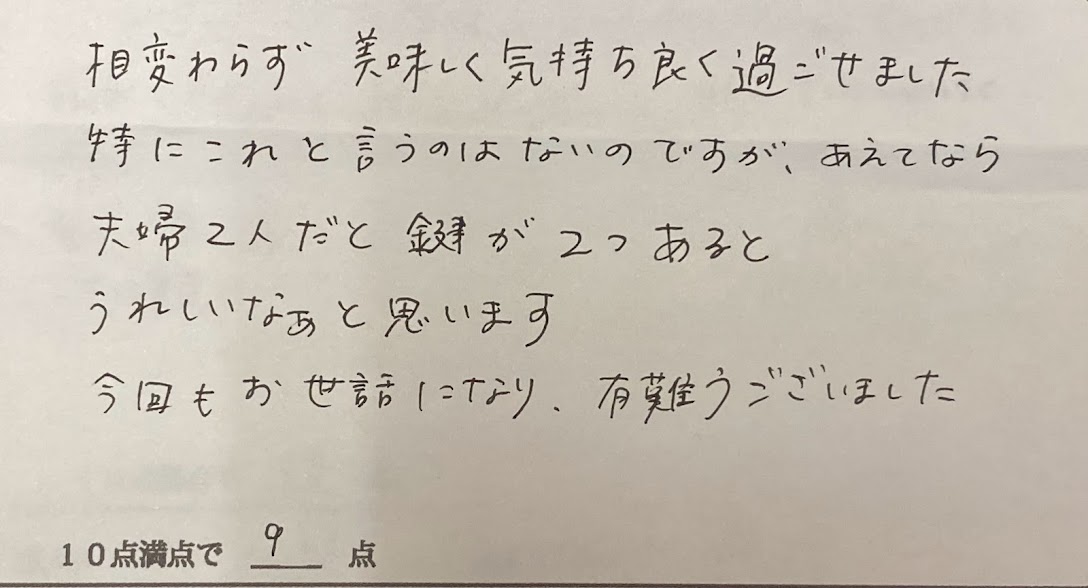 相変わらず 美味しく気持ち良く過ごせました
特にこれと言うのはないのですが、あえてなら
夫婦2人だと 鍵が 2つ あると
うれしいなぁと思います
今回もお世話になり、有難うございました
10点満点で 9 点